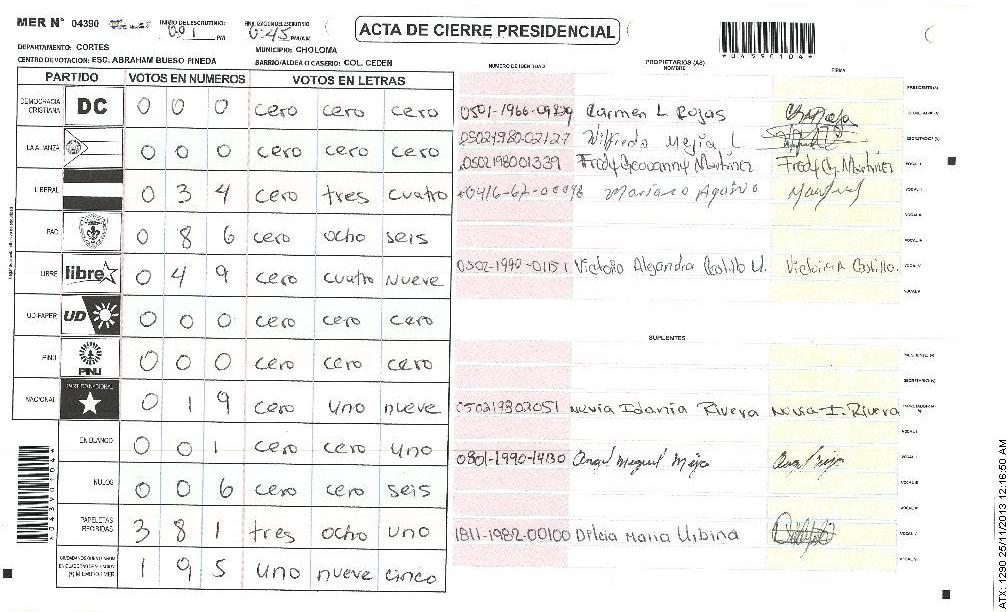 MER N° 04390
INICIO DE ESCRUTINIO:
PM
FINALIZACION DEL ESCRUTINIO
6:45 PM/AM
ACTA DE CIERRE PRESIDENCIAL
*04390104*
DEPARTAMENTO: CORTES
MUNICIPIO: CHOLOMA
CENTRO DE VOTACION: ESC. ABRAHAM BUESO PINEDA
BARRIO/ALDEA O CASERIO: COL. CEDEN
PARTIDO VOTOS EN NUMEROS VOTOS EN LETRAS
DEMOCRACIA CRISTIANA DC 0 0 0 cero cero cero
LA ALIANZA 0 0 0 cero cero cero
LIBERAL 0 3 4 cero tres cuatro
PAC 0 8 6 cero ocho seis
LIBRE libre 0 4 9 cero cuatro nueve
UD-FAPER UD 0 0 0 cero cero cero
PINU PINU 0 0 0 cero cero cero
NACIONAL PARTIDO NACIONAL 0 1 9 cero uno nueve
EN BLANCO 0 0 1 cero cero uno
NULOS 0 0 6 cero cero seis
PAPELETAS RECIBIDAS 3 8 1 tres ocho uno
1 9 5 uno nueve cinco
NUMERO DE IDENTIDAD
PROPIETARIOS (AS)
NOMBRE
FIRMA
PRESIDENTE (A)
Carmen L Rojas
SECRETARIO (A)
05021980-02127 Wilfredo Mejia L
0502198001339 Fredy Geovanny Martinez Fredy G. Martinez
VOCAL I
0416-67-00098 Mariano Aguirio
VOCAL II
VOCAL III
VOCAL IV
0502-1990-01151 Victoria Alejandra Castillo U. Victoria A Castillo.
VOCAL V
SUPLENTES
PRESIDENTE (A)
SECRETARIO (A)
050219802051 Nevia Idania Rivera Nevia I. Rivera
VOCAL I
0801-1990-14130 Angel Miguel Mejia
VOCAL II
VOCAL III
VOCAL IV
1811-1982-00100 Delcia Maria Urbina
VOCAL V
ATX: 1290 25/11/2013 12:16:50 AM